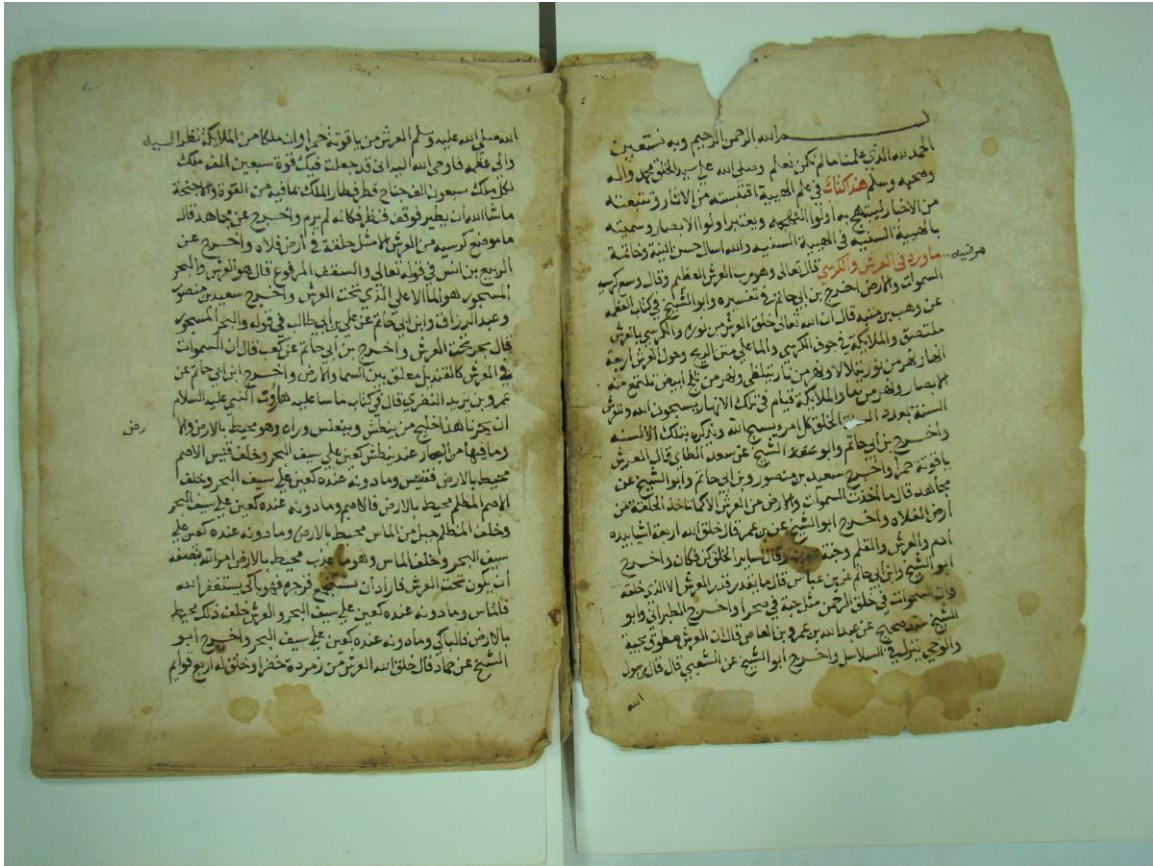 بسم الله الرحمن الرحيم وبه نستعين
الحمد لله الذي علمنا ما لم نكن نعلم وصلى الله على سيد الخلق محمد واله
وصحبه وسلم هذا كتاب في علم الهيبة اقتبسته من الاثار وتتبعته
من الاخبار ليبتهج به اولوا الفهم ويعتبر اولوا الابصار وسميته
بالهيبة السنيه في الهيبة السنيه والله اسال حسن النية وخاتمة
مرضيه
ما ورد في العرش والكرسي قال تعالى وهو رب العرش العظيم وقال وسع كرسيه
السموات والارض اخرج بن ابي حاتم في تفسيره وابو الشيخ في كتاب العظمه
عن وهب بن منبه قال ان الله تعالى خلق العرش من نوره والكرسي بالعرش
ملتصق والملايكة في جوف الكرسي والما على متن الريح وحول العرش اربعة
انهار نهر من نور يتلالا ونهر من نار تتلظى ونهر من ثلج ابيض تلتمع منه
الابصار ونهر من ما والملايكة قيام في تلك الانهار يسبحون الله وللعرش
السنة بعدد السنة الخلق كلهم يسبح الله ويذكره بتلك الالسنه
واخرج بن ابي حاتم وابو الشيخ عن سعد الطاي قال العرش
ياقوتة حمرا واخرج سعيد بن منصور وبن ابي حاتم وابو الشيخ عن
مجاهد قال ما اخذت السموات والارض من العرش الا كما تاخذ الحلقة من
ارض الفلاه واخرج ابو الشيخ عن بن عمر قال خلق الله اربعة اشيا بيده
ادم والعرش والقلم وجنة عدن وقال لساير الخلق كن فكان واخرج
ابو الشيخ وابن ابي حاتم عن بن عباس قال ما يقدر قدر العرش الا الذي خلقه
وان السموات في خلق الرحمن مثل حبة في صحرا واخرج الطبراني وابو
الشيخ بسند صحيح عن عبد الله بن عمرو بن العاص قال ان العرش مطوق بحية
والوحي ينزل في السلاسل واخرج ابو الشيخ عن الشعبي قال قال رسول
الله
الله صلى الله عليه وسلم العرش من ياقوتة حمرا وان ملكا من الملايكة نظر اليه
والى عظمه فاوحى الله اليه اني قد جعلت فيك قوة سبعين الف ملك
لكل ملك سبعون الف جناح فطر فطار الملك بما فيه من القوة والاجنحة
ما شا الله ان يطير فوقف فنظر فكانه لم يرم واخرج عن مجاهد قال
ما موضع كرسيه من العرش الا مثل حلقة في ارض فلاه واخرج عن
الربيع بن انس في قوله تعالى والسقف المرفوع قال هو العرش والبحر
المسجور هو الما الاعلى الذي تحت العرش واخرج سعيد بن منصور
وعبد الرزاق وابن ابي حاتم عن علي بن ابي طالب في قوله والبحر المسجور
قال بحر تحت العرش واخرج بن ابي حاتم عن كعب قال ان السموات
في العرش كالقنديل معلق بين السما والارض واخرج ابن ابي حاتم عن
عمرو بن يزيد النضري قال في كتاب ما سا عليه هارون النبي عليه السلام
ان بحرنا هذا خليج من ينطش وينطس وراه وهو محيط بالارض والا
رض
وما فيها من البحار عند ينطش كعين على سيف البحر وخلف قنيس الاصم
محيط بالارض فقنيس وما دونه عنده كعين على سيف البحر وخلف
الاصم المظلم محيط بالارض فالاصم وما دونه عنده كعين على سيف البحر
وخلف المظلم جبل من الماس محيط بالارض وما دونه عنده كعين على
سيف البحر وخلف الماس وهو ما عذب محيط بالارض امر الله نصفه
ان يكون تحت العرش فاراد ان يستجمع فزجره فهو باكي يستغفر الله
فالماس وما دونه عنده كعين على سيف البحر والعرش خلف ذلك محيط
بالارض فالباكي وما دونه عنده كعين على سيف البحر واخرج ابو
الشيخ عن حماد قال خلق الله العرش من زمردة خضرا وخلق له اربع قوايم